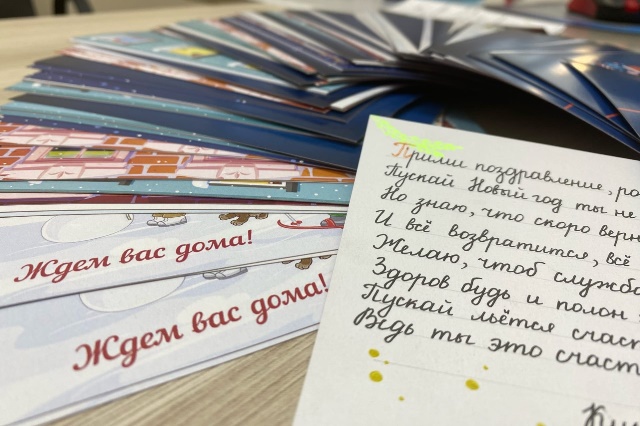 Ждем вас дома!
Ждем вас дома!
Прими поздравление,
Пускай Новый год ты не
Но знаю, что скоро
И всё возвратится, всё
Желаю, чтоб
Здоров будь и полон
Пускай льётся
Ведь ты это